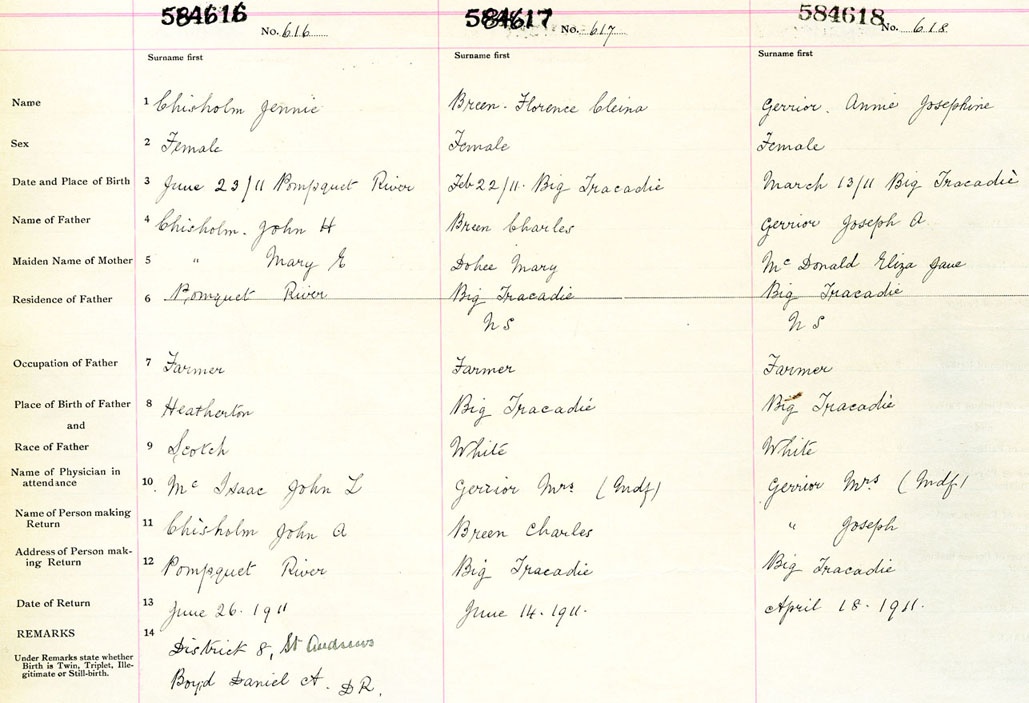 584616 584617 584618
No. 616 No. 617 No. 618
Surname first Surname first Surname first
Name 1 Chisholm Jennie Breen. Florence Cleina Gerrior. Annie Josephine
Sex 2 Female Female Female
Date and Place of Birth 3 June 23/11 Pompquet River Feb 22/11. Big Tracadie March 13/11 Big Tracadie
Name of Father 4 Chisholm. John H Breen Charles Gerrior Joseph A.
Maiden Name of Mother 5 " Mary E Dohee Mary Mc Donald Eliza Jane
Residence of Father 6 Pomquet River Big Tracadie Big Tracadie
N S N S
Occupation of Father 7 Farmer Farmer Farmer
Place of Birth of Father 8 Heatherton Big Tracadie Big Tracadie
and
Race of Father 9 Scotch White White
Name of Physician in
attendance 10. Mc Isaac John L Gerrior Mrs (Mdf) Gerrior Mrs (Mdf)
Name of Person making
Return 11 Chisholm John A Breen Charles " Joseph
Address of Person mak-
ing Return 12 Pompquet River Big Tracadie Big Tracadie
Date of Return 13 June 26. 1911 June 14. 1911. April 18. 1911.
REMARKS 14 District 8, St Andrews
Under Remarks state whether
Birth is Twin, Triplet, Ille-
gitimate or Still-birth.
Boyd Daniel A. DR.